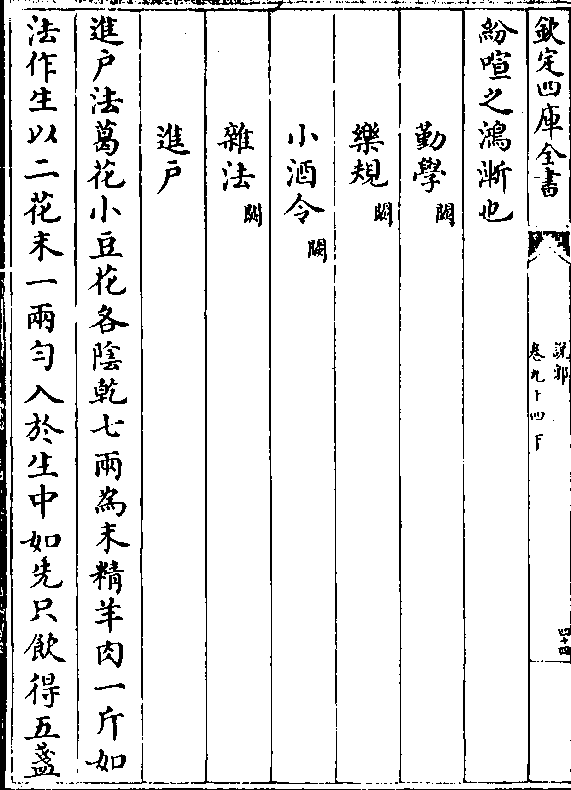 欽定四庫全書
說郛
卷九十四下
四十四
紛喧之鴻漸也
勤學闕
樂規闕
小酒令闕
雜法闕
進戶
進戶法葛花小豆花各陰乾七兩為末精羊肉一斤如
法作生以二花末一兩勻入於生中如先只飲得五盞